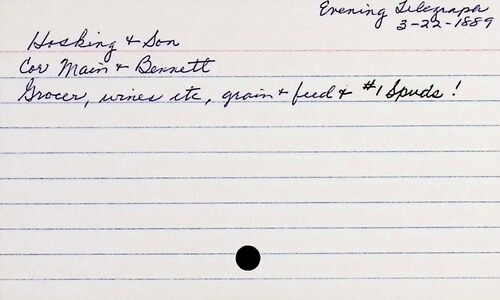 Evening Telegraph
3-22-1889
Hosking & Son
Cor Main & Bennett
Grocer, wines etc, grain & feed & #1 Spuds!